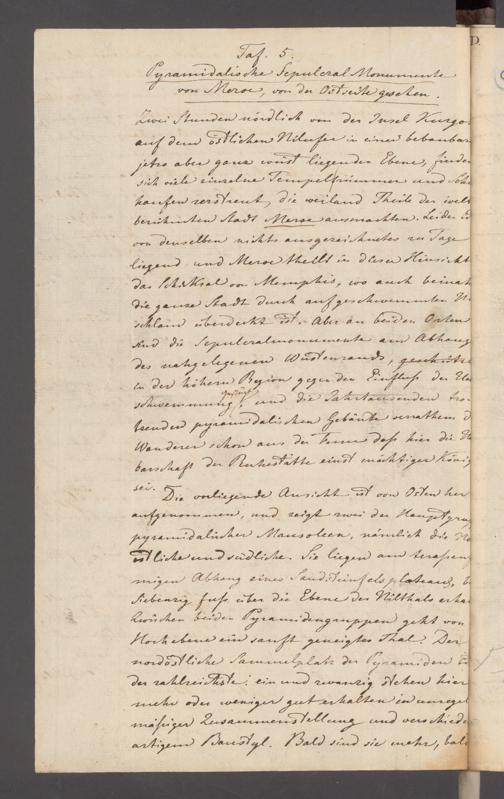 Taf. 5.
Pyramidalische Sepulcral Monumente
von Meroe, von der Ostseite gesehen.
Zwei Stunden nördlich von der Insel Kurgo
auf dem östlichen Nilufer in einer bebaubar
jetzo aber ganz wüst liegenden Ebene, finden
sich viele einzelne Tempeltrümmer und
haufen zerstreut, die weiland Theile der welt
berühmten Stadt Meroe ausmachten. Leider is
von denselben nichts ausgezeichnetes zu Tage
liegend und Meroe theilt in dieser Hinsicht
das Schicksal von Memphis, wo auch beinah
die ganze Stadt durch aufgeschwemmten N
schlam überdeckt ist. Aber an beiden Orten
sind die Sepulcralmonumente am Abhang
des nahgelegenen Wüstenrands, geschütz
in der höhern Region gegen den Einfluss der
schwemmung, und die Jahrtausenden tro
tzenden pyramidalischen Gebäude verrathen d
Wanderer schon aus der Ferne dass hier die
barschaft der Ruhestätte einst mächtiger König
sei.
Die vorliegende Ansicht ist von Osten her
aufgenommen, und zeigt zwei der Hauptgrup
pyramidalischer Mausoleen, nämlich die
östliche und südliche. Sie liegen am terassen
migen Abhang eines Sandsteinfelsplateaus, b
siebenzig fuss über die Ebene des Nilthals erha
Zwischen beiden Pyramidengruppen geht von
Hochebene ein sanft geneigtes Thal. Der
nordöstliche Sammelplatz der Pyramiden
der zahlreichste; ein und zwanzig stehen hier
mehr oder weniger gut erhalten in unregel
mäsiger Zusammenstellung und verschieden
artigem Baustyl. Bald sind sie mehr, bald
D.